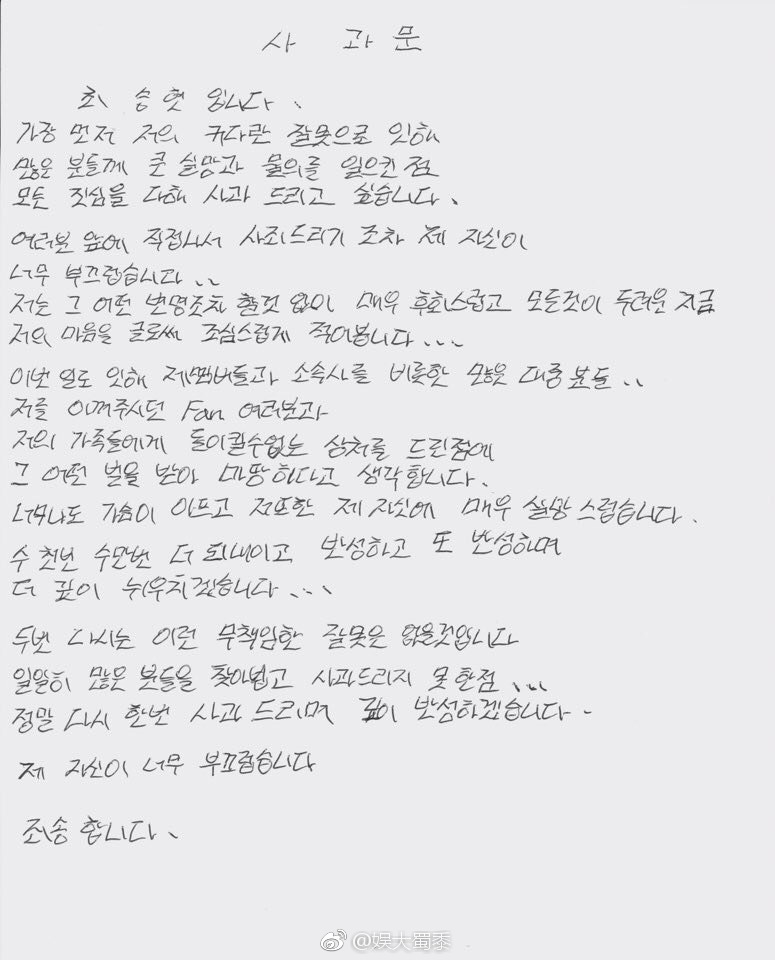 사 과 문
최 승 현 입니다.
가장 먼저 저의 커다란 잘못으로 인해
많은 분들께 큰 실망과 물의를 일으킨 점
모든 진심을 다해 사과 드리고 싶습니다.
여러분 앞에 직접나서 사죄드리기 조차 제 자신이
너무 부끄럽습니다..
저는 그 어떤 변명조차 할것 없이 매우 후회스럽고 모든것이 두려운 지금
저의 마음을 글로써 조심스럽게 적어봅니다...
이번 일로 인해 제멤버들과 소속사를 비롯한 많은 대중분들..
저를 아껴주시던 Fan 여러분과
저의 가족들에게 돌이킬수없는 상처를 드린점에
그 어떤 벌을 받아 마땅하다고 생각합니다.
너무나도 가슴이 아프고 저또한 제 자신에 매우 실망 스럽습니다.
수 천번 수만번 더 되내이고 반성하고 또 반성하며
더 깊이 뉘우치겠습니다...
두번 다시는 이런 무책임한 잘못은 없을것입니다
일일히 많은 분들을 찾아뵙고 사과드리지 못한점...
정말 다시 한번 사과 드리며 깊이 반성하겠습니다.
제 자신이 너무 부끄럽습니다
죄송 합니다.
@娱大蜀黍